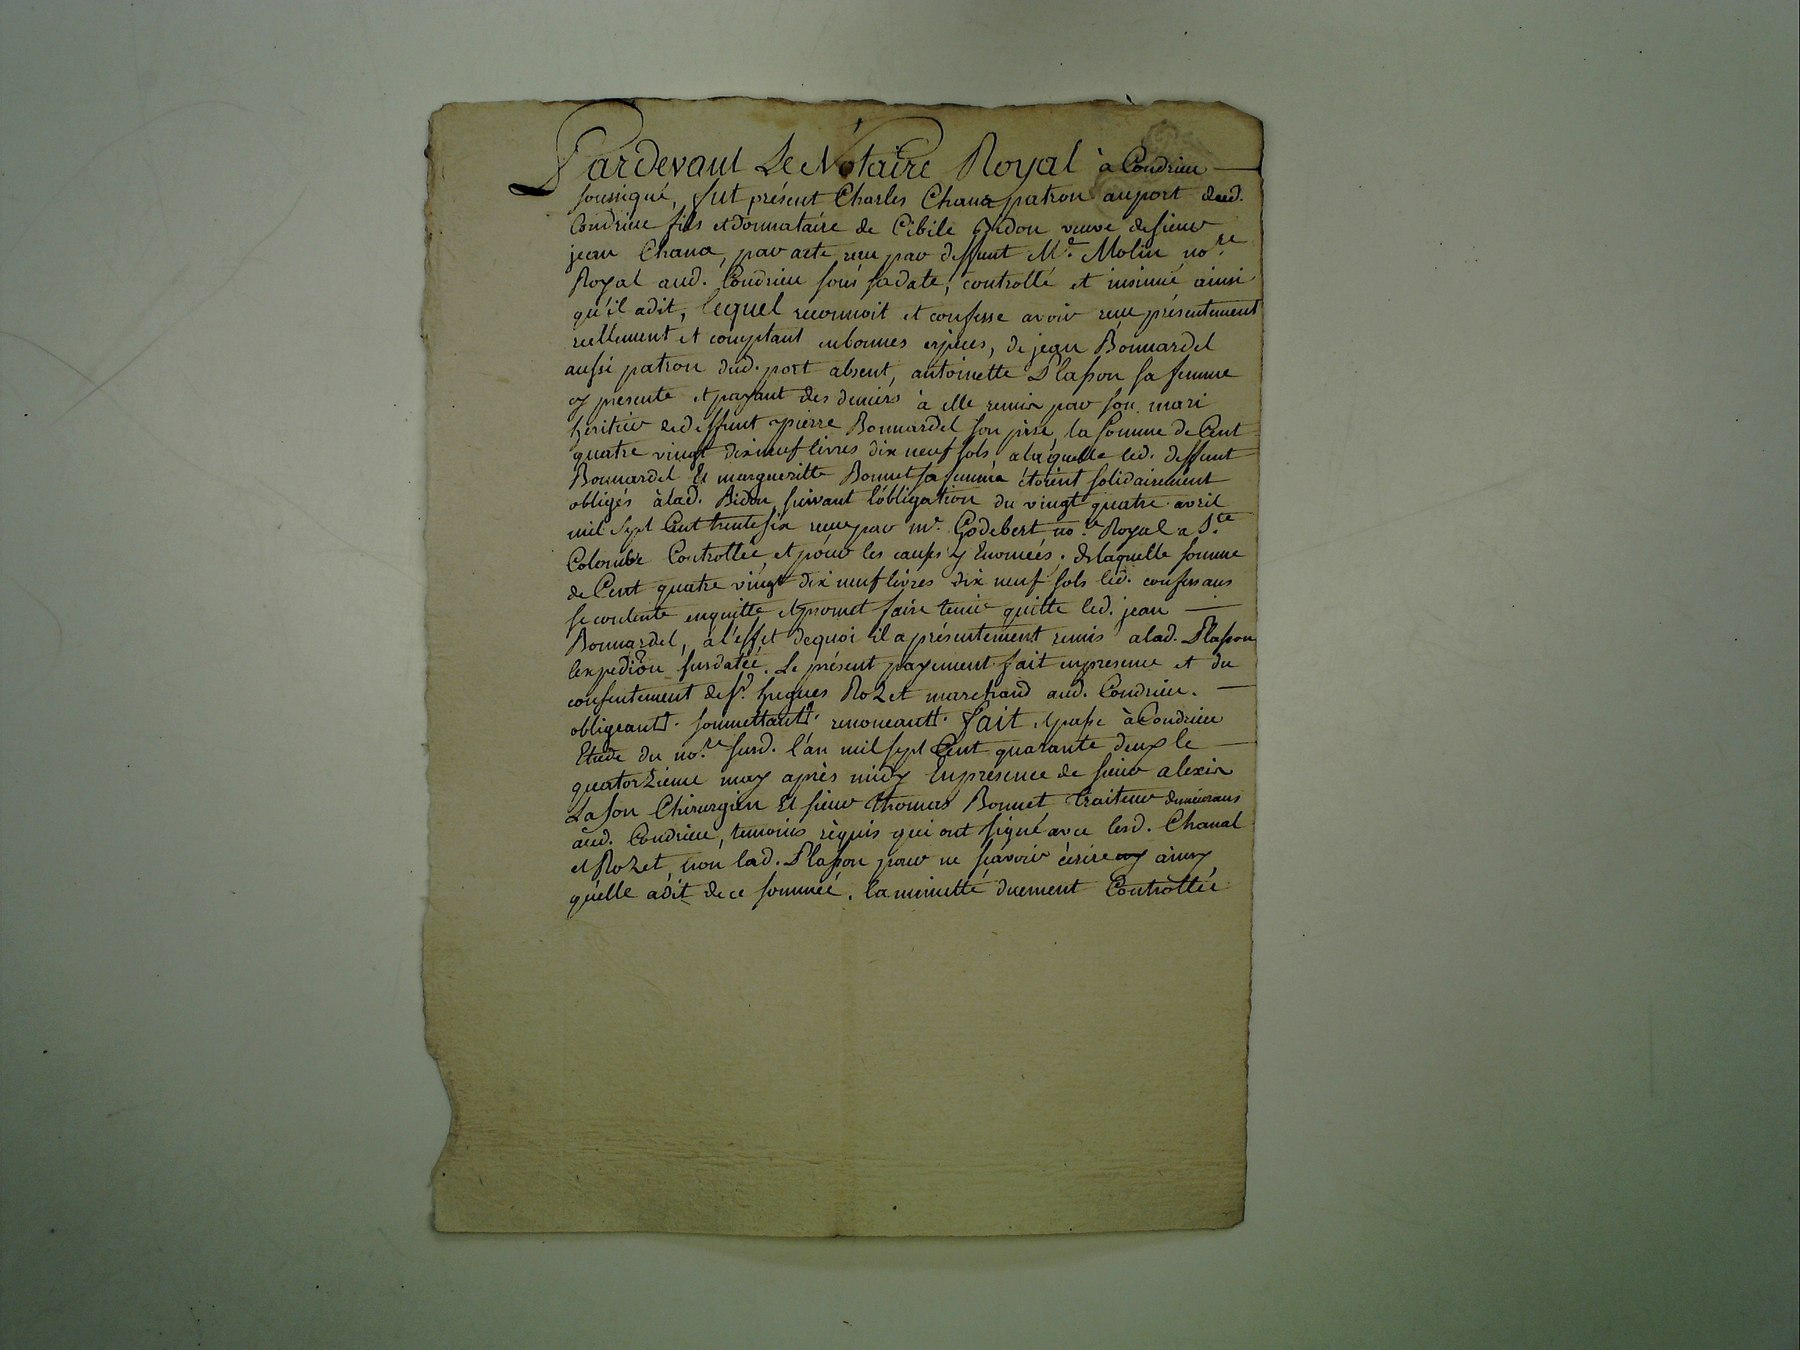 Pardevant Le Notaire Royal à Condrieu
soussigné, fut présent Charles Chana patron au port dud.
Condrieu fils et donnataire de Cibile Bidon veuve de sieur
jean Chana, par acte reçu par deffunt Me. Molin nore.
Royal aud. Condrieu sous sa date, controllé et insinué ainsi
qu'il a dit, lequel reconnoit et confesse avoir reçu présentement
reellement et comptant en bonnes espèces, de jean Bonnardel
aussi patron dud. port absent, antoinette Plasson sa femme
cy presente et payant des deniers à elle remis par son mari
heritier de deffunt pierre Bonnardel son père, la somme de Cent
quatre vingt dix neuf livres dix neuf sols a laquelle led. deffunt
Bonnardel Et margueritte Bonnet sa femme étoient solidairement
obligés à lad. Bidon, suivant l'obligation du vingt quatre avril
mil sept Cent trente six reçue par mr. Godebert no.re Royal a Ste.
Colombe Controllée, et pour les causes y Enoncées, de laquelle somme
de Cent quatre vingt dix neuf livres dix neuf sols led. confessans
se contente en quitte et promet faire tenir quitte led. jean
Bonnardel, à l'effet de quoi il a présentement remis a lad. Plasson
l'expediôn susdatée. Le présent payement fait en presence et du
consentement de Sr. hugues Rozet marchand aud. Condrieu.
obligeantt. soumettantt. renonceantt. fait et passé à Condrieu
Etude du no.re susd. l'an mil sept Cent quarante deux le
quatorzieme may après midy En presence de sieur alexis
Lason Chirurgien Et sieur thomas Bonnet traiteur demeurans
aud. Condrieu, temoins requis qui ont signé avec lesd. Chanal
et Rozet, non lad. Plasson pour ne sçavoir écrire ainsy
qu'elle a dit de ce sommée. la minutte duement Controllée